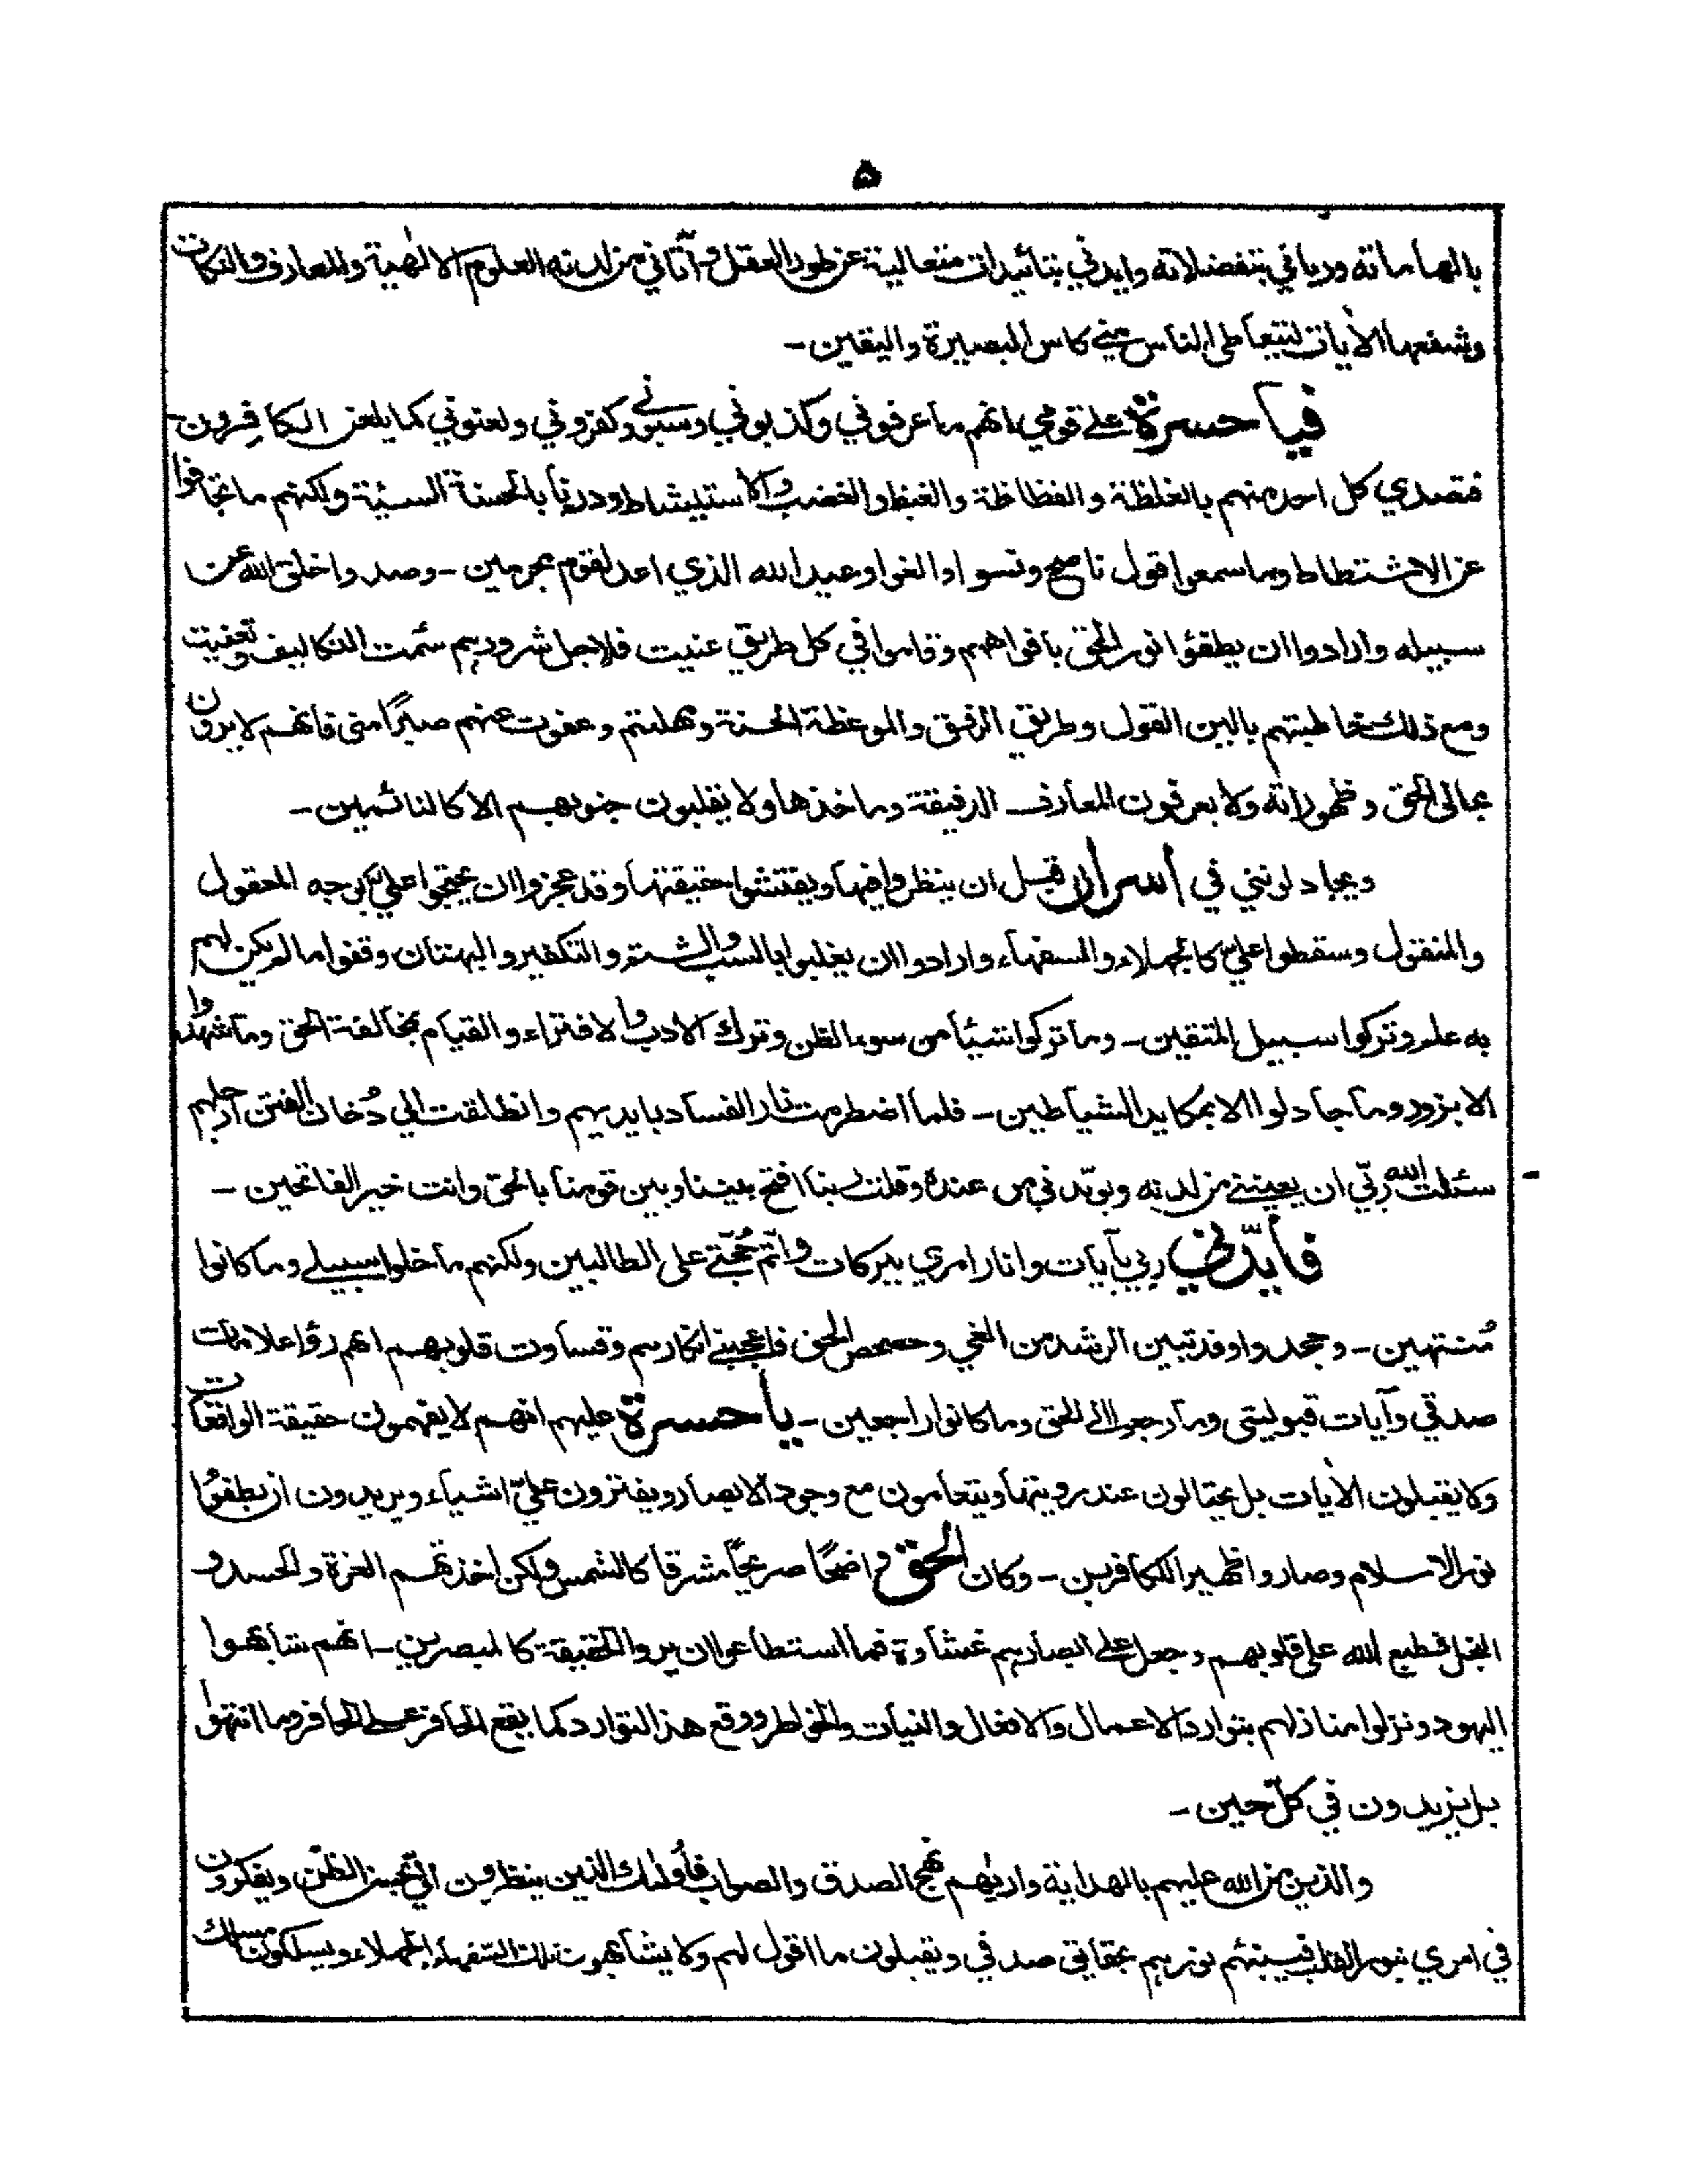 ۵
بالهاماته ورباني بتفضلاته وايدني بتائيدات متعالية عن طور العقل وآتاني من لدنه العلوم الالٰهية والمعارف والنكات
وشفعها الأيات ليتعاطى الناس مني كاس البصيرة واليقين -
فيا حسرة على قومي انهم ما عرفوني وكذبوني وسبّوني وكفروني ولعنوني كما يلعن الكافرون -
فتصدي كل احد منهم بالغلظة والفظاظة والغيظ والغضب والاستيشاط ودرءنا بالحسنة السيئة ولكنهم ما تجافوا
عن الاشتطاط وما سمعوا قول ناصح ونسوا والغوا وعيد الله الذي اعد لقوم مجرمين - وصدوا خلق الله عن
سبيله وارادوا ان يطفؤا نور الحق بافواههم وقاموا في كل طريق عنيت فلاجل شرورهم سئمت التكاليف وتعنيت
ومع ذلك خاطبتهم بالين القول وطريق الرفق والموعظة الحسنة وتمهلتهم وعفوت عنهم صبرًا مني فانهم لا يرون
مجالى الحق وظهوراته ولا يعرفون المعارف الدقيقة وماخذها ولا يقلبون جنوبهم الا كالنائمين -
ويجادلونني في أسرار قبل ان ينظروا فيها ويفتشوا حقيقتها وقد عجزوا ان يحتجوا عليّ بوجه المعقول
والمنقول وسقطوا عليّ كالجهلاء والسفهاء وارادوا ان يغلبوا بالسب والشتم والتكفير والبهتان وقفوا ما لم يكن لهم
به علم وتركوا سبيل المتقين - وما تركوا شيًا من سوء الظن وترك الادب والافتراء والقيام بمخالفة الحق وما شهدوا
الا بزور وما جادلوا الا بمكايد الشياطين - فلما اضطرمت نار الفساد بايديهم وانطلقت الى دُخان الفتن ارجلهم
سئلت الله ربّي ان يعينني من لدنه ويؤيّدني من عنده وقلت ربنا افتح بيننا وبين قومنا بالحق وانت خير الفاتحين -
فأيّدني ربي بآيات وانار امري ببركات واتم حُجّتي على الطالبين ولكنهم ما خلوا سبيلي وما كانوا
مُنتهين - وجحدوا وقد تبين الرشد من الغي وحصحص الحق فاعجبني انكارهم وقساوت قلوبهم انهم رؤا علامات
صدقي وآيات قبوليتي وما رجعوا الى الحق وما كانوا راجعين - يا حسرة عليهم انهم لا يفهمون حقيقة الواقعات
ولا يقبلون الأيات بل يحتالون عند رويتها ويتعامون مع وجود الابصار ويفترون عليّ اشياء ويريدون ان يطفؤا
نور الاسلام وصاروا ظهيرا للكافرين - وكان الحق واضحًا صريحًا مشرقا كالشمس ولكن اخذتهم العزة والحسد و
البخل فطبع الله على قلوبهم وجعل على ابصارهم غشاوة فما استطاعوا ان يروا الحقيقة كالمبصرين - انهم شابهوا
اليهود ونزلوا منازلهم بتوارد الاعمال والافعال والنيات والخواطر ووقع هذا التوارد كما يقع الحافر على الحافر وما انتهوا
بل يزيدون في كلّ حين -
والذين منّ الله عليهم بالهداية واراهم نهج الصدق والصواب فأولئك الذين ينظرون اليّ بحسن الظنّ ويفكرون
في امري بنور القلب فينبئهم نورهم بحقايق صدقي ويقبلون ما اقول لهم ولا يشابهون تلك السّفهاء الجهلاء ويسلكون مسالك